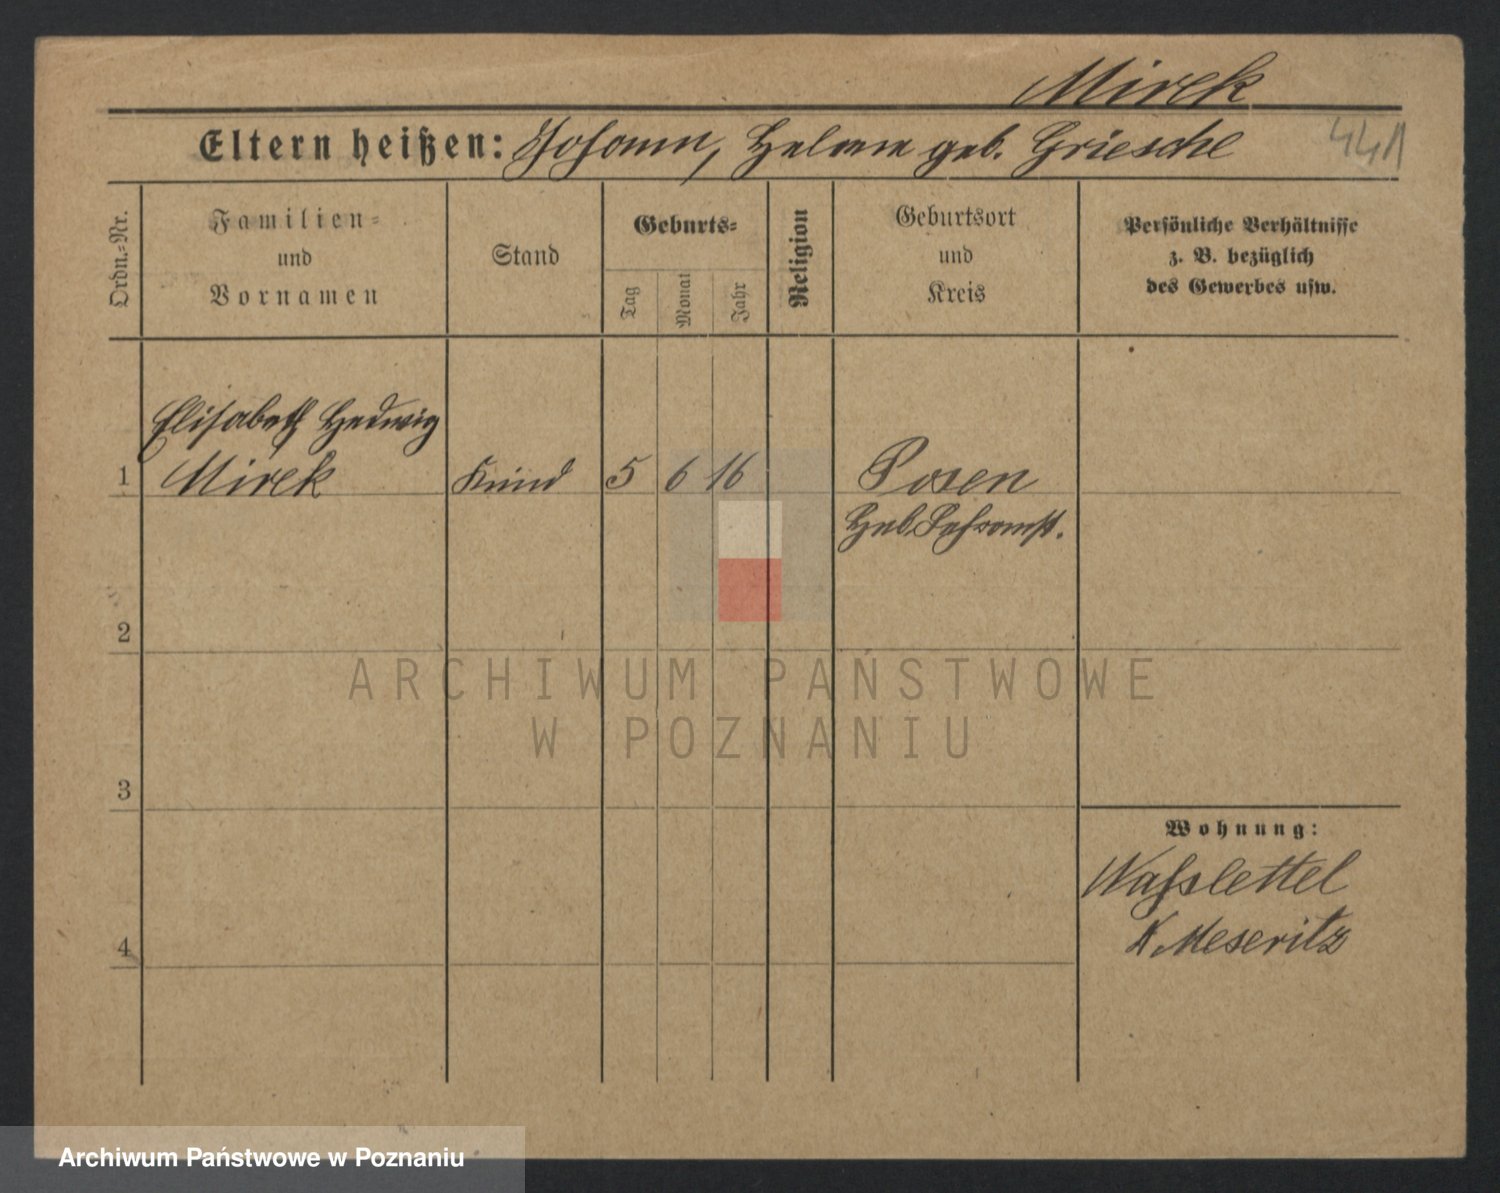 Mirek
Eltern heißen: Johann, Helene geb. Griesche
441
Ordn.=Nr.
Familien=
und
Vornamen
Stand
Geburts=
Tag
Monat
Jahr
Religion
Geburtsort
und
Kreis
Persönliche Verhältnisse
z. B. bezüglich
des Gewerbes usw.
Elisabeth Hedwig
1 Mirek Kind 5 6 16 Posen
Heb.
2
3
4
Wohnung:
K. Meseritz
ARCHIWUM PAŃSTWOWE
W POZNANIU
Archiwum Państwowe w Poznaniu